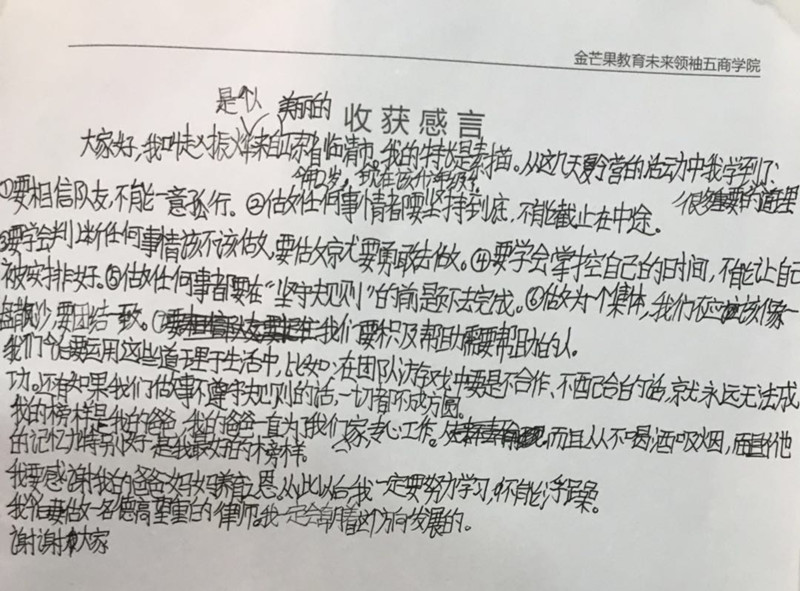 金芒果教育未来领袖五商学院
是个 美丽的
收获感言
大家好,我叫赵振烨来自山东省临清市。我的特长是素描。从这几天夏令营的活动中我学到了:
今年12岁,现在读小学
很多重要的道理
①要相信队友,不能一意孤行。②做任何事情都要坚持到底,不能截止在中途。
③要学会判断任何事情该不该做,要做就要勇敢去做。④要学会掌控自己的时间,不能让自己
被安排好。⑤做任何事都要在“坚守规则”的前提下去完成。⑥做为一个集体,我们不应该像一
盘散沙,要团结一致。⑦我们要积极帮助需要帮助的人。
我们今后要运用这些道理于生活中,比如:在团队游戏中要是不合作、不配合的话,就永远无法成
功。还有如果我们做事不遵守规则的话,一切都不成方圆。
我的榜样是我的爸爸,我的爸爸一直为了我们家专心工作。而且从不喝酒吸烟,而且他
的记忆力特别好是我最好的榜样。
我要感谢我的爸爸妈妈养育之恩。从此以后我一定要努力学习,不能浮躁。
我要做一名德高望重的律师。我一定会朝着这个方向发展的。
谢谢大家